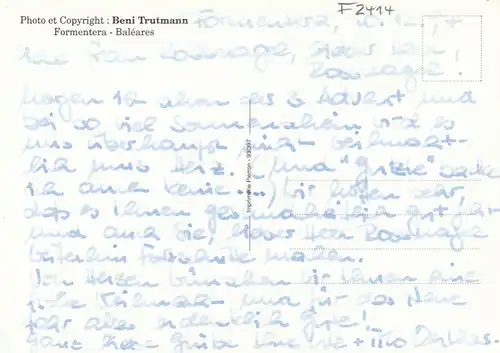 Photo et Copyright : Beni Trutmann
Formentera - Baléares
F2414
Formentera, 10.12.
Liebe Frau Roosnagel, lieber Herr
Roosnagel!
Morgen ist schon der 3. Advent und
bei so viel Sonnenschein wird es
uns überhaupt nicht weihnacht-
lich ums Herz. (und "Gutzle" backe
ich auch keine...) Wir hoffen sehr,
daß es Ihnen gesundheitlich gut geht
und auch Sie, lieber Herr Roosnagel
weiterhin Fortschritte machen.
Von Herzen wünschen wir Ihnen eine
frohe Weihnacht und für das Neue
Jahr alles erdenklich Gute!
Ganz liebe Grüße
Imprimerie Pierron - 93097